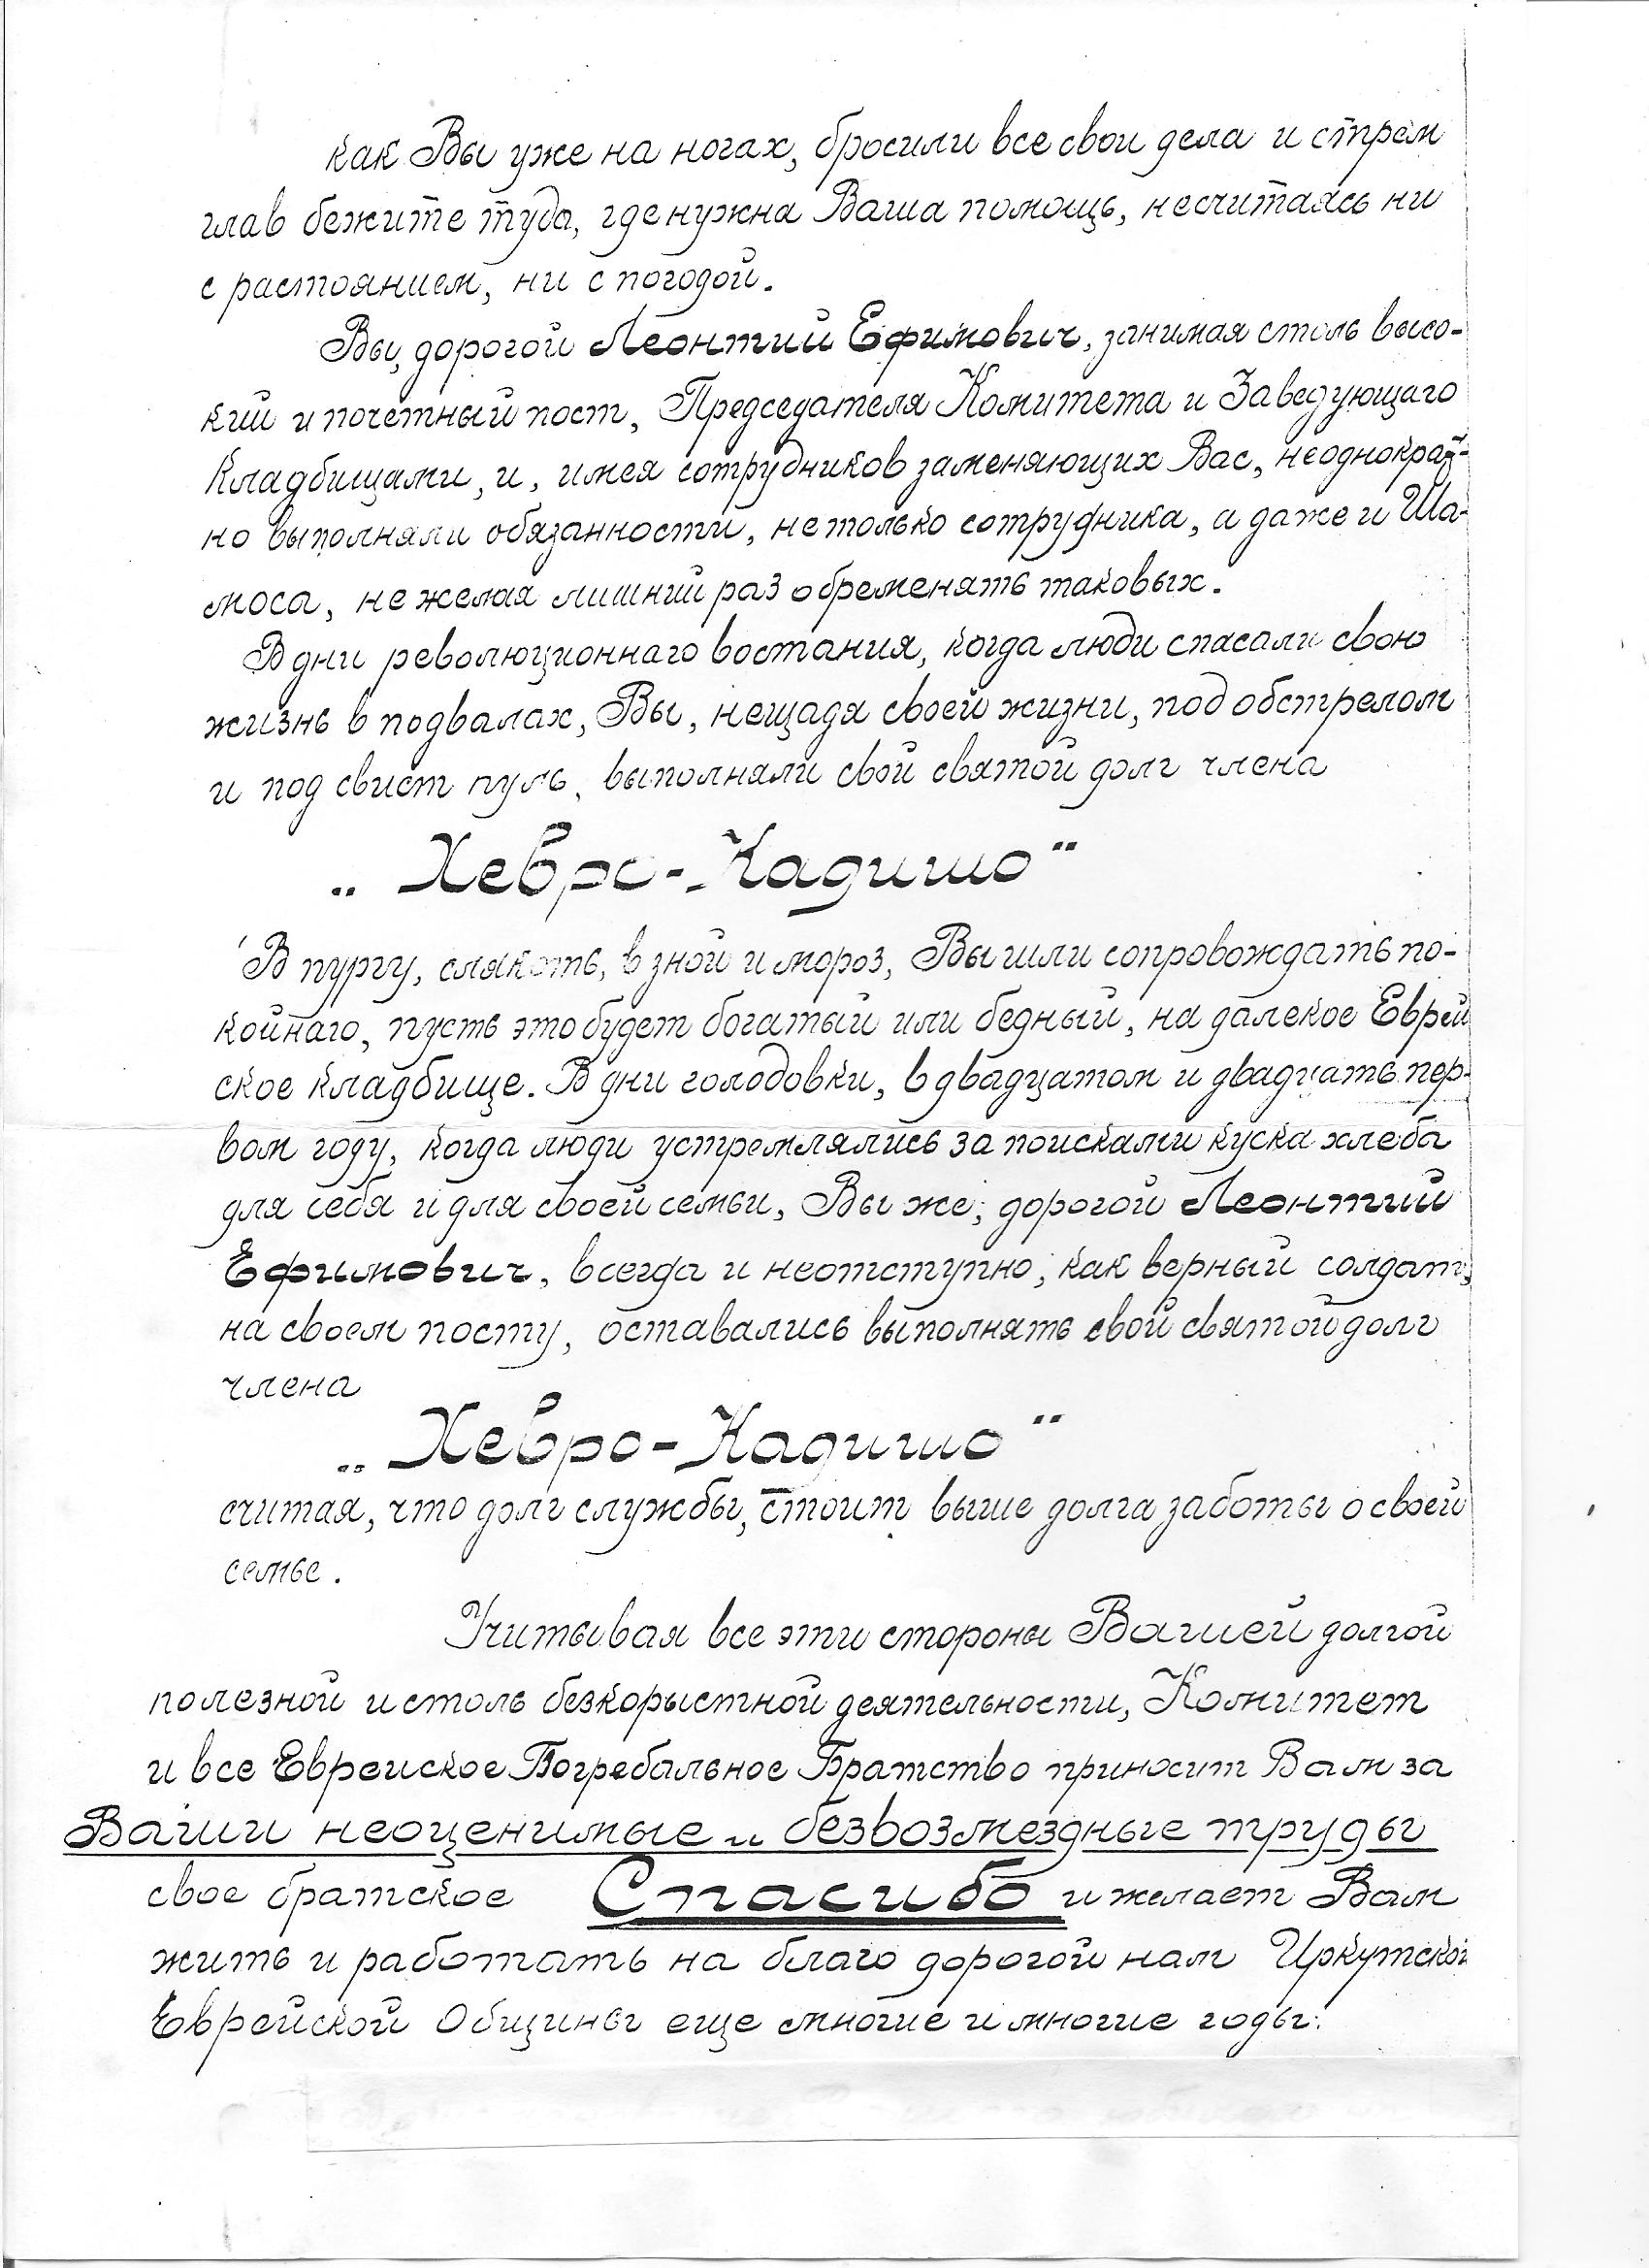 как Вы уже на ногах, бросили все свои дела и стрем
глав бежите туда, где нужна Ваша помощь, несчитаясь ни
с растоянием, ни с погодой.
Вы, дорогой Леонтий Ефимович, занимая столь высо-
кий и почетный пост, Председателя Комитета и Заведующаго
Кладбищами, и, имея сотрудников заменяющих Вас, неоднократ-
но выполняли обязанности, не только сотрудника, а даже и Ша-
моса, не желая лишний раз обременять таковых.
В дни революционнаго востания, когда люди спасали свою
жизнь в подвалах, Вы, нещадя своей жизни, под обстрелом
и под свист пуль, выполняли свой святой долг члена
„Хевро-Кадишо"
В пургу, слякоть, в зной и мороз, Вы шли сопровождать по-
койнаго, пусть это будет богатый или бедный, на далекое Еврей
ское кладбище. В дни голодовки, в двадцатом и двадцать пер-
вом году, когда люди устремлялись за поисками куска хлеба
для себя и для своей семьи, Вы же, дорогой Леонтий
Ефимович, всегда и неотступно, как верный солдат,
на своем посту, оставались выполнять свой святой долг
члена
„Хевро-Кадишо"
считая, что долг службы, стоит выше долга заботы о своей
семье.
Учитывая все эти стороны Вашей долгой
полезной и столь безкорыстной деятельности, Комитет
и все Еврейское Погребальное Братство приносит Вам за
Ваши неоценимые и безвозмездные труды
свое братское Спасибо и желает Вам
жить и работать на благо дорогой нам Иркутской
Еврейской Общины еще многие и многие годы.